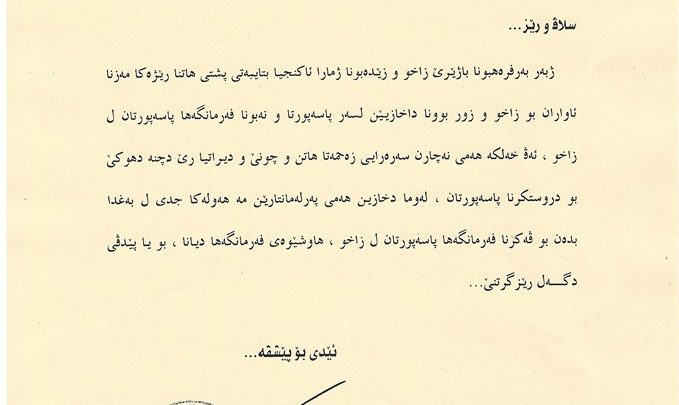 سلاڤ و رێز...
ژبەر بەرفرەهبونا باژێرێ زاخو و زێدەبونا ژمارا ئاکنجیا بتایبەتی پشتی هاتنا رێژەکا مەزنا
ئاواران بو زاخو و زور بوونا داخازیێن لسەر پاسەپورتا و نەبونا فەرمانگەها پاسەپورتان ل
زاخو ، ئەڤ خەلکە هەمی نەچارن سەرەرایی زەحمەتا هاتن و چونێ و دیراتیا رێ دچنە دهوکێ
بو دروستکرنا پاسەپورتان ، لەوما دخازین هەمی پەرلەمانتارێن مە هەولەکا جدی ل بەغدا
بدەن بو ڤەکرنا فەرمانگەها پاسەپورتان ل زاخو ، هاوشێوەی فەرمانگەها دیانا ، بو یا پێدڤی
دگـــەل رێزگرتنێ...
ئێدی بۆ پێشڤە...